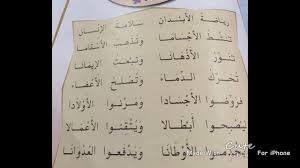 رياضة الأبدان سلامة الإنسان
تنشط الأجساما وتذهب الأسقاما
تنور الأذهانا وتبعث الإيمانا
تحرك الدماء وتصلح الأعضاء
فروضوا الأجسادا ومرنوا الأولادا
ليصبحوا أبطالا ويتقنوا الأعمالا
الأوطانا ويدفعوا العدوانا
For iPhone